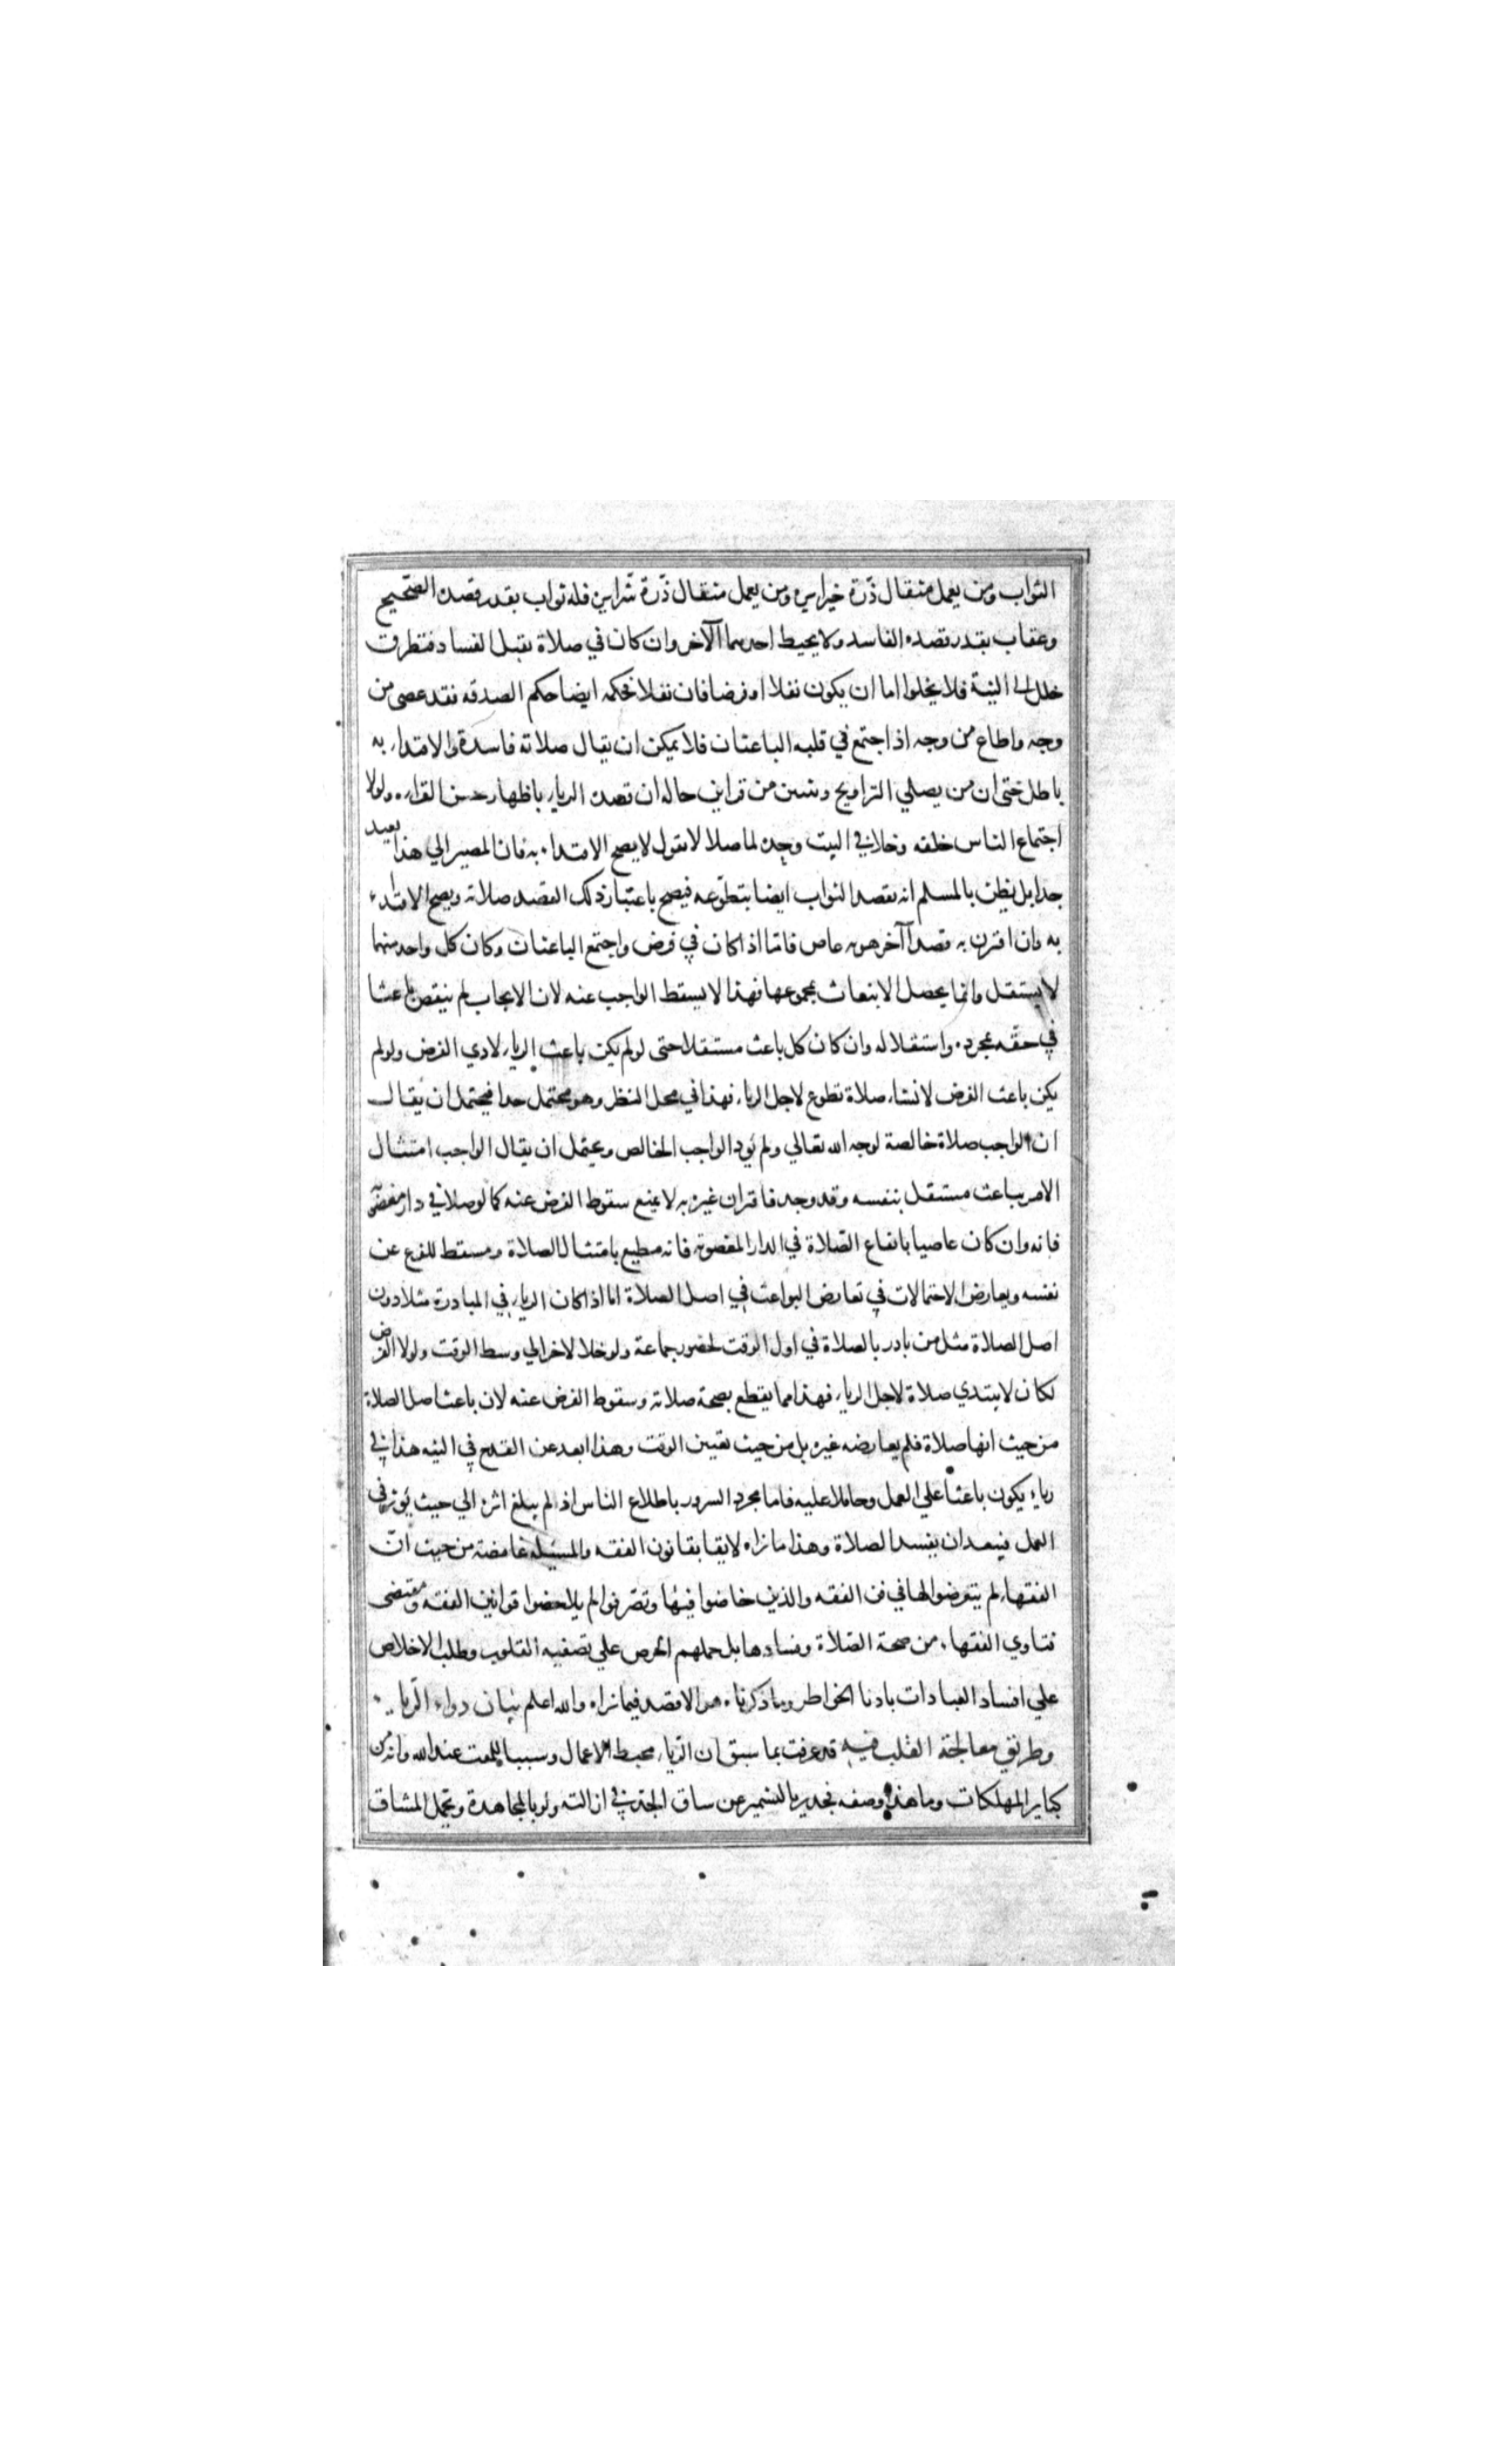 الثواب ومن يعمل مثقال ذرّة خيرا يره ومن يعمل مثقال ذرّة شرا يره فله ثواب بقدر قصده الصحيح
وعقاب بقدر قصده الفاسد ولا يحيط احدهما الآخر وان كان في صلاة تقبل الفساد فتطرق
خلل الى النية فلا يخلوا اما ان يكون نفلا او فرضا فان نفلا فحكمه ايضا حكم الصدقه فقد عصى من
وجه واطاع من وجه اذ اجتمع في قلبه الباعثان فلا يمكن ان يقال صلاته فاسدة والاقتداء به
باطل حتى ان من يصلي التراويح وتبين من قراين حاله ان قصده الرياء باظهار حسن القراءه ولولا
اجتماع الناس خلفه وخلا في البيت وحده لما صلا لا نقول لا يصح الاقتداء به فان المصير الي هذا بعيد
جدا بل يظن بالمسلم انه يقصد الثواب ايضا بتطوّعه فيصح باعتبار ذلك القصد صلاته ويصح الاقتداء
به وان اقترن به قصدا آخر هو به عاص فامّا اذا كان في فرض واجتمع الباعثان وكان كل واحد منهما
لا يستقل وانما يحصل الانبعاث بمجموعها فهذا لا يسقط الواجب عنه لان الايجاب لم ينتقص باعثا
في حقّه بمجرده واستقلاله وان كان كل باعث مستقلا حتى لو لم يكن باعث الرياء لادي الفرض ولو لم
يكن باعث الفرض لانشاء صلاة تطوع لاجل الرياء فهذا في محل النظر وهو محتمل جدا فيحتمل ان يقال
ان الواجب صلاة خالصة لوجه الله تعالي ولم يؤد الواجب الخالص ويحتمل ان يقال الواجب امتثال
الامر بباعث مستقل بنفسه وقد وجد فاقتران غيره به لا يمنع سقوط الفرض عنه كما لو صلا في دار مغصوبة
فانه وان كان عاصيا بايقاع الصّلاة في الدار المغصوبة فانه مطيع بامتثال الصلاة ومسقط للفرع عن
نفسه ويعارض الاحتمالات في تعارض البواعث في اصل الصلاة اما اذا كان الرياء في المبادرة مثلا دون
اصل الصلاة مثل من بادر بالصلاة في اول الوقت لحضور جماعة ولو خلا لاخر الي وسط الوقت ولولا الفرض
لكان لا يبتدي صلاة لاجل الرياء فهذا مما يقطع بصحة صلاته وسقوط الفرض عنه لان باعث اصل الصلاة
من حيث انها صلاة فلم يعارضه غيره بل من حيث تعيين الوقت وهذا ابعد عن القدح في النيه هذا في
رياء يكون باعثا علي العمل وحاملا عليه فاما مجرد السرور باطلاع الناس اذ لم يبلغ اثره الي حيث يؤثر في
العمل فيبعد ان يفسد الصلاة وهذا ما نراه لايقا بقانون الفقه والمسئله غامضة من حيث انّ
الفقهاء لم يتعرضوا لها في فن الفقه والذين خاضوا فيها وتصرفوا لم يلاحضوا قوانين الفقه ومقتضى
فتاوي الفقهاء من صحة الصّلاة وفسادها بل حملهم الحرص علي تصفيه القلوب وطلب الاخلاص
علي افساد العبادات بادنا الخواطر وما ذكرناه هو الاقصد فيما نراه والله اعلم بيان دواء الرياء
وطريق معالجة القلب فيه قد عرفت بما سبق ان الرّياء محبط الاعمال وسببا للمقت عند الله وانه من
كباير المهلكات وما هذا وصفه فجدير بالتشمير عن ساق الجدّ في ازالته ولو بالمجاهدة وتحمل المشاق